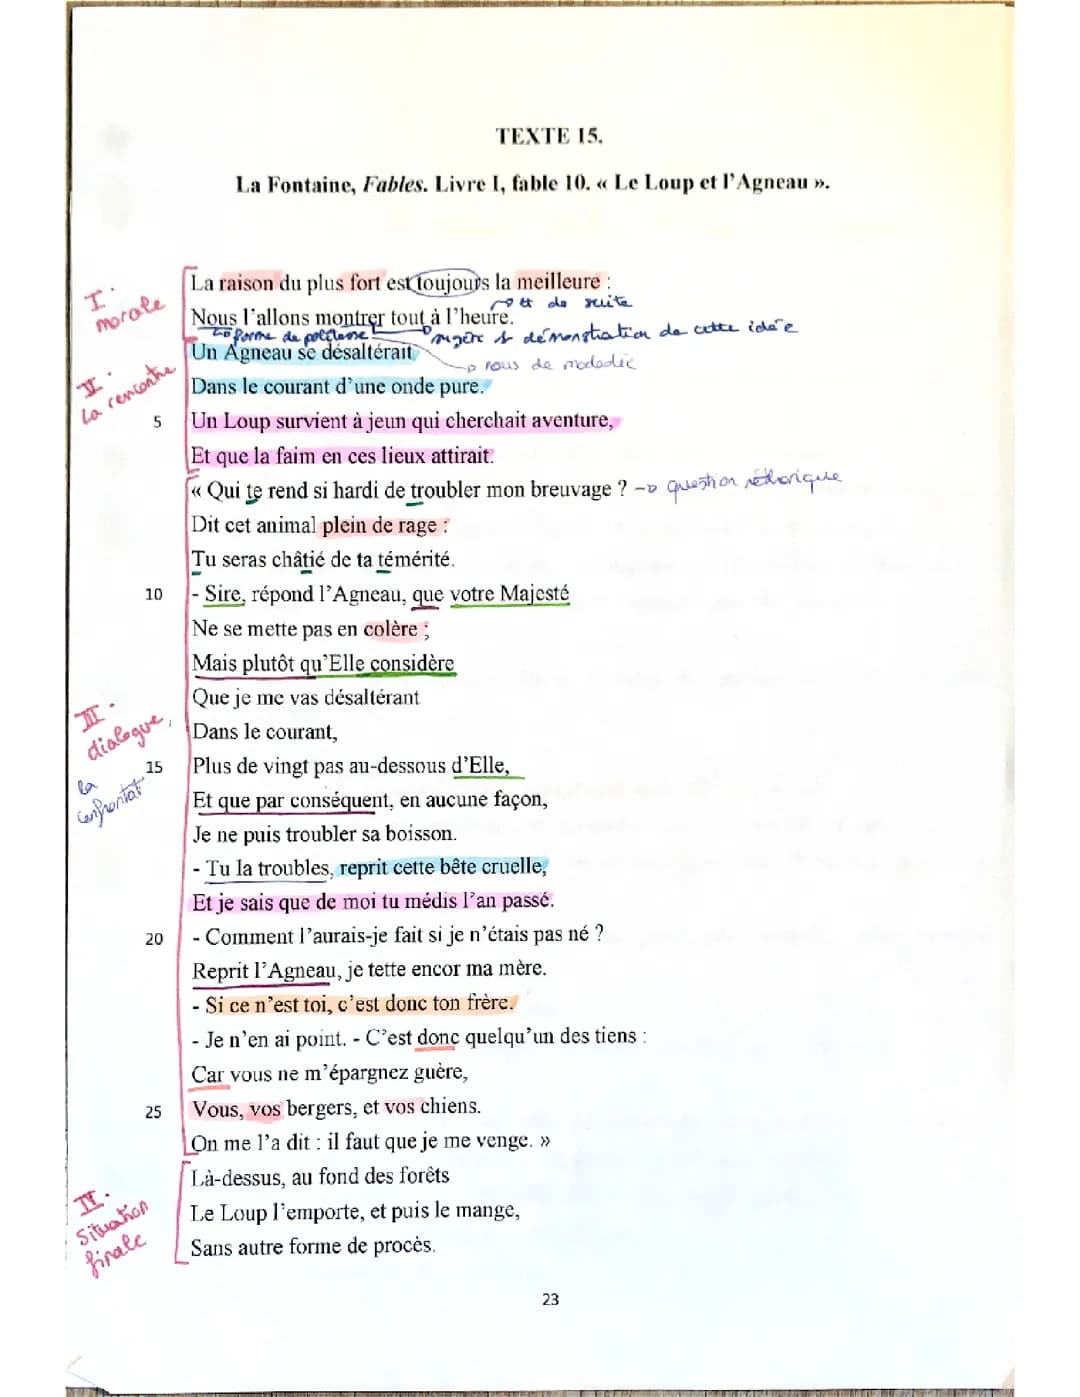 TEXTE 15.
La Fontaine, Fables. Livre I, fable 10. « Le Loup et l'Agneau ».
I. morale
La raison du plus fort est toujours la meilleure :
→ tt de suite
Nous l'allons montrer tout à l'heure.
↳ forme de politesse
démonstration de cette idée
Un Agneau se désaltérait
→ nous de
II. La rencontre
Dans le courant d'une onde pure.
5 Un Loup survient à jeun qui cherchait aventure,
Et que la faim en ces lieux attirait.
« Qui te rend si hardi de troubler mon breuvage ? → question réthorique
Dit cet animal plein de rage :
Tu seras châtié de ta témérité.
10 - Sire, répond l'Agneau, que votre Majesté
Ne se mette pas en colère ;
Mais plutôt qu'Elle considère
Que je me vas désaltérant
III. dialogue,
Dans le courant,
15 Plus de vingt pas au-dessous d'Elle,
la confrontat°
Et que par conséquent, en aucune façon,
Je ne puis troubler sa boisson.
- Tu la troubles, reprit cette bête cruelle,
Et je sais que de moi tu médis l'an passé.
20 - Comment l'aurais-je fait si je n'étais pas né ?
Reprit l'Agneau, je tette encor ma mère.
- Si ce n'est toi, c'est donc ton frère.
- Je n'en ai point. - C'est donc quelqu'un des tiens :
Car vous ne m'épargnez guère,
25 Vous, vos bergers, et vos chiens.
On me l'a dit : il faut que je me venge. »
Là-dessus, au fond des forêts
IV. Situation finale
Le Loup l'emporte, et puis le mange,
Sans autre forme de procès.
23